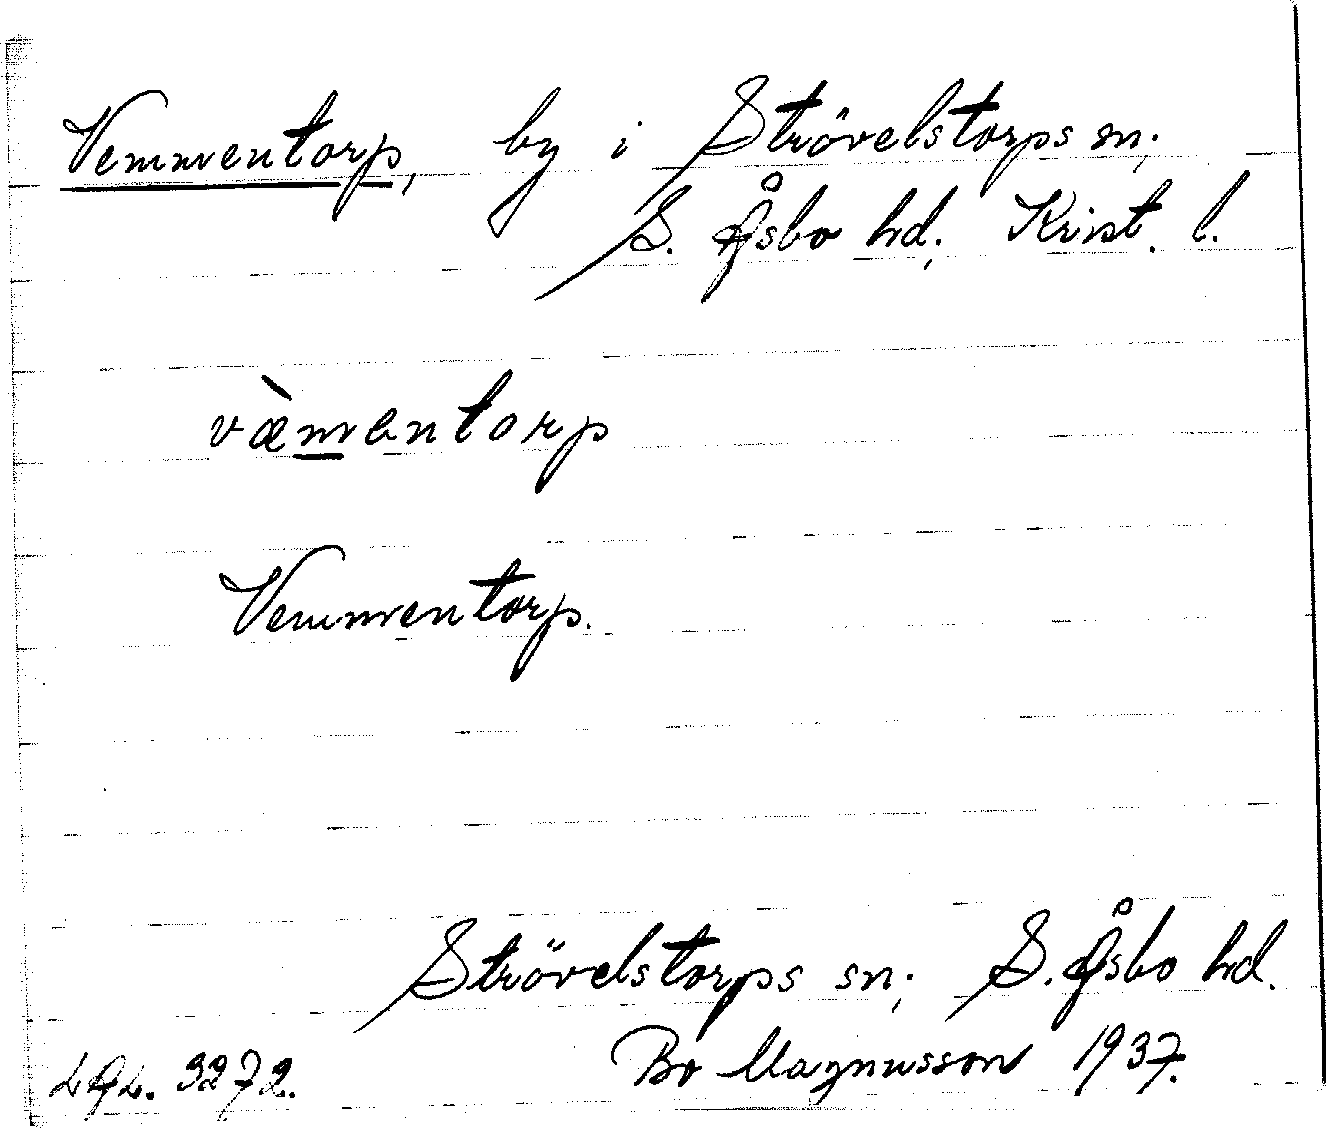 Vemmentorp, by i Strövelstorps sn;
S. Åsbo hd; Krist. l.
væ̀mentorp
Vemmentorp.
Strövelstorps sn; S. Åsbo hd.
LAL. 3272. Bo Magnusson 1937.